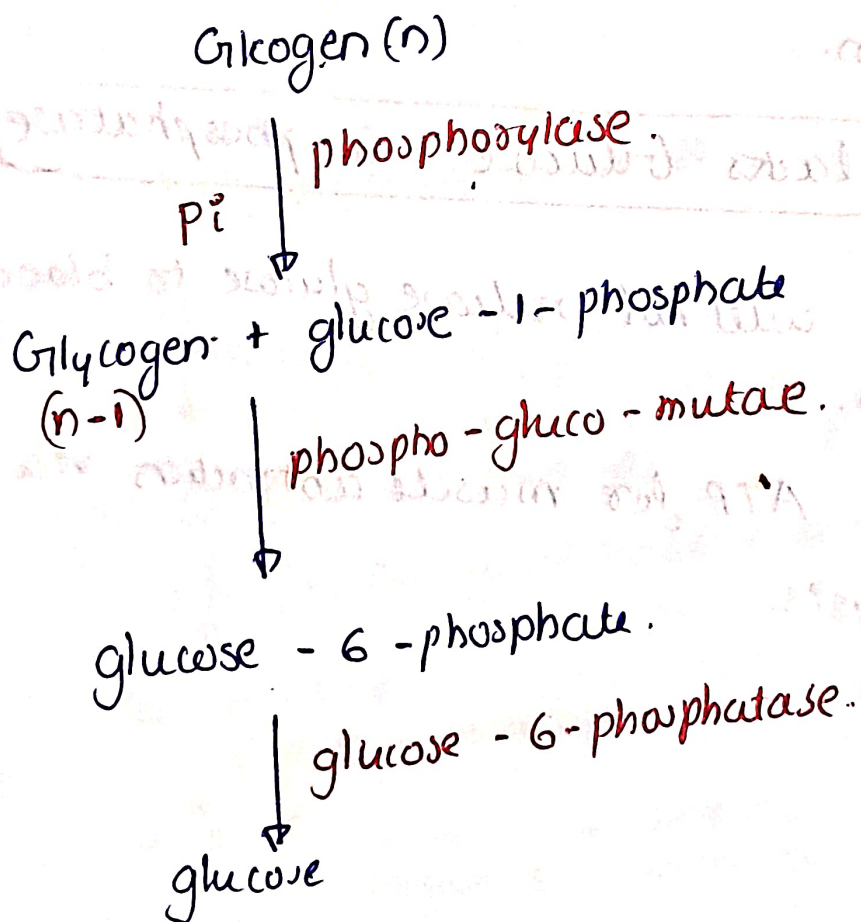 Glcogen (n)
phosphorylase.
Pi
Glycogen + glucose - 1 - phosphate
(n-1)
phospho - gluco - mutae.
glucose - 6 - phosphate.
glucose - 6 - phosphatase.
glucose